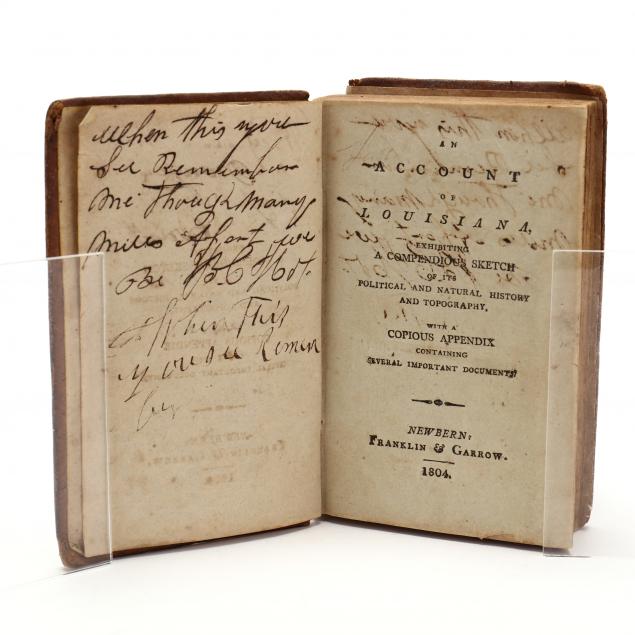 When this you
See Remember
Me Though Many
Miles Apart we
Be
When This
you see Remem
ber
AN
ACCOUNT
OF
LOUISIANA,
EXHIBITING
A COMPENDIOUS SKETCH
OF ITS
POLITICAL AND NATURAL HISTORY
AND TOPOGRAPHY,
WITH A
COPIOUS APPENDIX
CONTAINING
SEVERAL IMPORTANT DOCUMENTS.
NEWBERN:
FRANKLIN & GARROW.
1804.